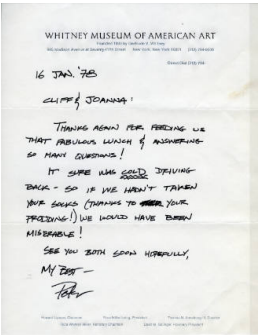 WHITNEY MUSEUM OF AMERICAN ART
New York, New York 10021
16 JAN. '78
CLIFF & JOANNA:
THANKS AGAIN FOR FEEDING US
THAT FABULOUS LUNCH & ANSWERING
SO MANY QUESTIONS!
IT SURE WAS COLD DRIVING
BACK - SO IF WE HADN'T TAKEN
YOUR SOCKS (THANKS TO YOUR
PRODDING!) WE WOULD HAVE BEEN
MISERABLE!
SEE YOU BOTH SOON HOPEFULLY,
MY BEST —